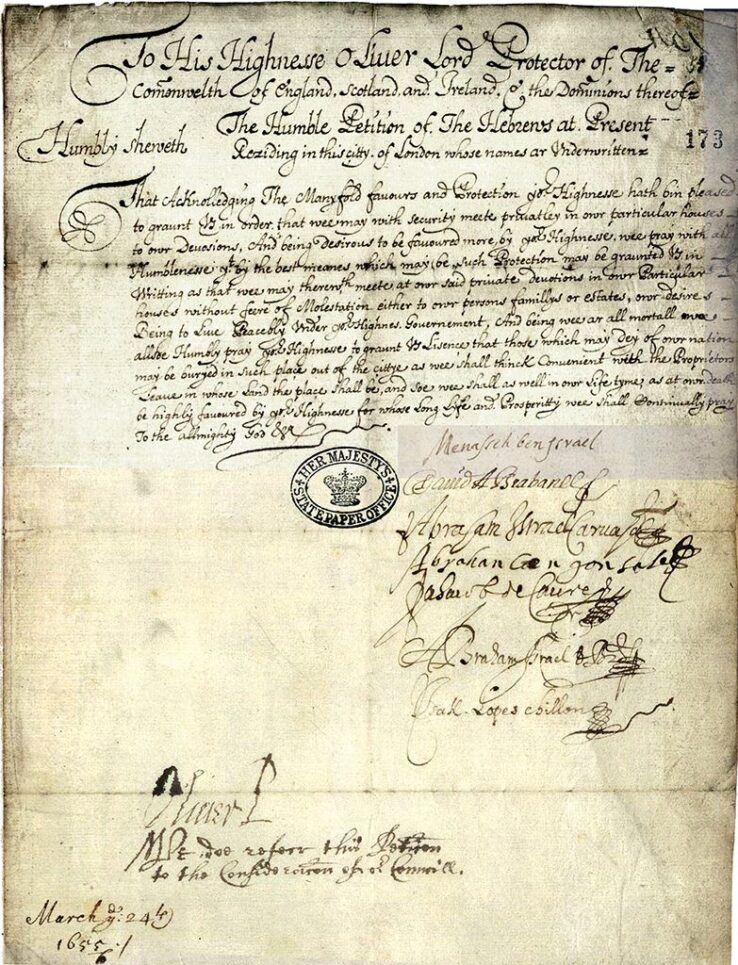 To His Highnesse Oliver Lord Protector of. The=
Com̄onwelth of England, Scotland, and, Ireland, &, the Dominions thereof=
The Humble Petition of. The Hebrews at. Present
Humbly sheweth
Reziding in this citty. of London whose names ar Underwritten=
173
That Acknolledging The Manyfold favours and Protection yor. Highnesse hath bin pleased
to graunt Us in order, that wee may with security meete privatley in owr particular houses
to owr Devosions, And being desirous to be favoured more, by yor. Highnesse. wee pray with all
Humblenesse yt. by the best meanes which may be, Such Protection may be graunted Us in
Writting as that wee may therewth meete at owr said private devotions in owr Particular
houses without feere of Molestation either to owr persons famillys or estates, owr desires
Being to Live Peacebly Under yor. Highnes. Governement, And being wee ar all mortall wee
allsoe Humbly pray yor. Highnesse to graunt Us Lisence that those which may dey of owr nation
may be buryed in Such place out of the cittye as wee shall thinck Convenient with the Proprietors
Leave in whose Land the place Shall be, and soe wee shall as well in owr Life tyme, as at owr death
be highly favoured by yor. Highnesse for whose Long Life and Prosperitty wee shall Continually pray
To the allmighty God &c.
HER MAJESTY'S
STATE PAPER OFFICE
Menasseh ben Israel
David Abrabanel
Abraham Israel Carvajal
Abraham Coen gonsales
Jahacob de Caceres
Abraham Israel
Isak. Lopes chillon
Oliver P
Wee doe referr this Peticon
to the Consideracon of or Councill.
March ye: 24th
1655/6